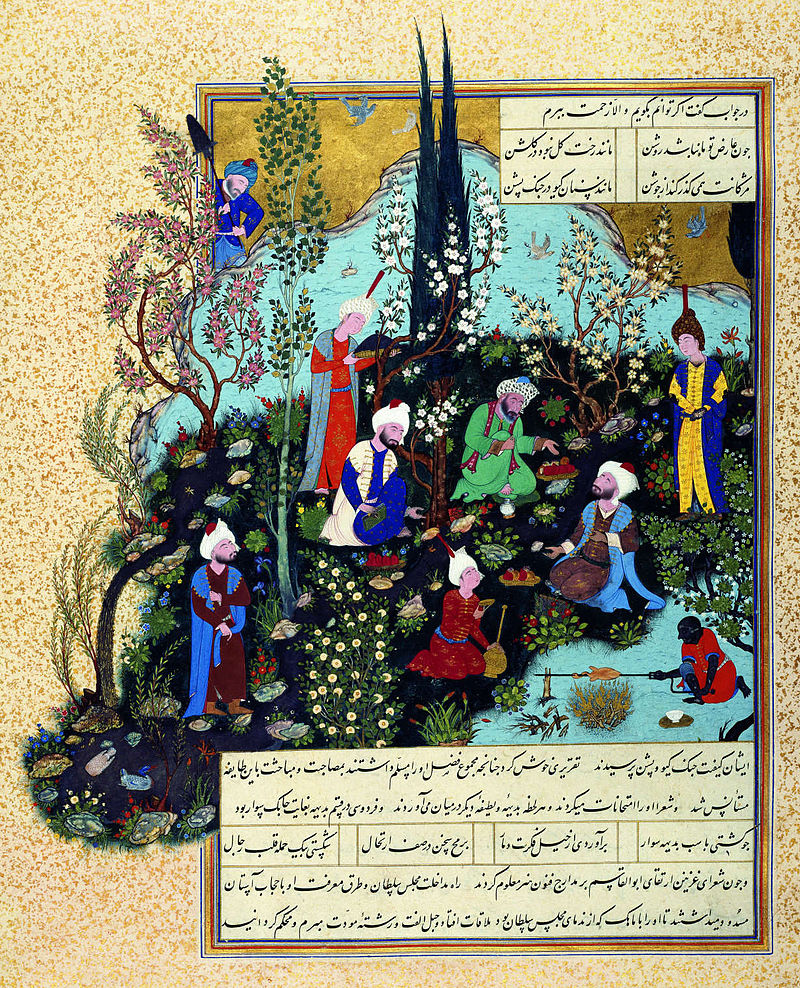 در جواب گفت اگر توانم بگویم و الا زحمت ببرم
چون عارض تو ماه نباشد روشن مانند رخت گل نبود در گلشن
مژکانت همی کذر کند از جوشن مانند سنان کیو در جنک پشن
ایشان کیفیت جنک کیو و پشن پرسیدند تقریری خوش کرد چنانچه مجموع فضل او را مسلم داشتند بمصاحبت و مباحثت با این طایفه
مستأنس شد و شعرا او را امتحانات میکردند و هر لحظه بدیهه و لطیفه دیگر در میان می آوردند و فردوسی در قسم بدیهه بغایت چابک سوار بود
چو کشتی باسب بدیهه سوار برآوردی از خیل فکرت دمار برمح سخن در صف ارتجال شکستی بیک حمله قلب جبال
و چون شعرای غزنین ارتقای ابوالقاسم بر مدارج فنون هنر معلوم کردند راه مداخلت مجلس سلطان و طرق معرفت او با حجاب آستان
مسدود میداشتند تا او را با ماهک که از ندمای مجلس سلطان بود ملاقات افتاد و حبل الفت و رشته مودت مبرم و محکم کردانید